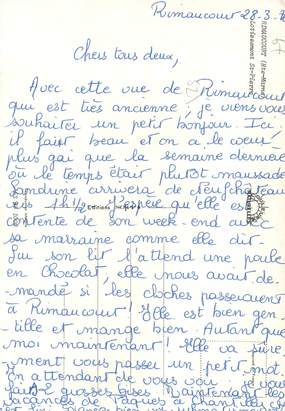 Rimaucourt 28-3-
Chers tous deux,
Avec cette vue de Rimaucourt
qui est très ancienne, je viens vous
souhaiter un petit bonjour. Ici
il fait beau et on a le cœur
plus gai que la semaine dernière
où le temps était plutôt maussade
Sandrine arrivera de Neufchateau
vers 1h 1/2 j'espère qu'elle est
contente de son week-end avec
sa marraine comme elle dit.
Sur son lit l'attend une poule
en chocolat, elle nous avait de-
mandé si les cloches passeraient
à Rimaucourt! Elle est bien gen-
tille et mange bien. Autant que
moi maintenant! Elle va sûre-
ment vous passer un petit mot.
En attendant de vous voir, je vous
fais 2 grosses bises. Maintenant les
vacances de Pâques à
RIMAUCOURT